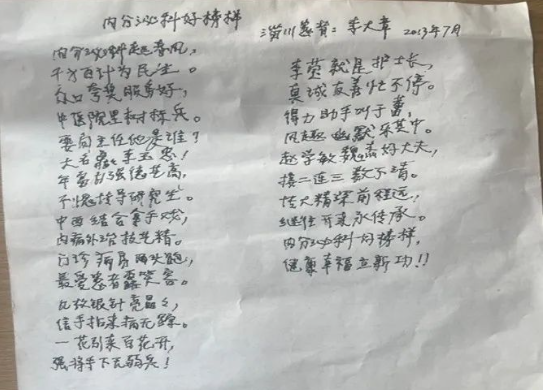 内分泌科好榜样
淄川患者：李大章 2013年7月
内分泌科起春风，
千方百计为民生。
众口夸奖服务好，
中医院里树标兵。
要问主任他是谁？
大名鼎鼎李玉忠！
年富力强德艺高，
不愧指导研究生。
中西结合拿手戏，
内病外治技艺精。
门诊病房两头跑，
最爱患者露笑容。
九放银针亮晶々，
信手拈来病无踪。
一花引来百花开，
强将手下无弱兵！
李荧就是护士长，
真诚友善忙不停。
得力助手刘子
风趣幽默乐其中。
赵学敏魏 好大夫，
接二连三数不清。
博大精深前程远，
继往开来永传承。
内分泌科好榜样，
健康幸福立新功!!